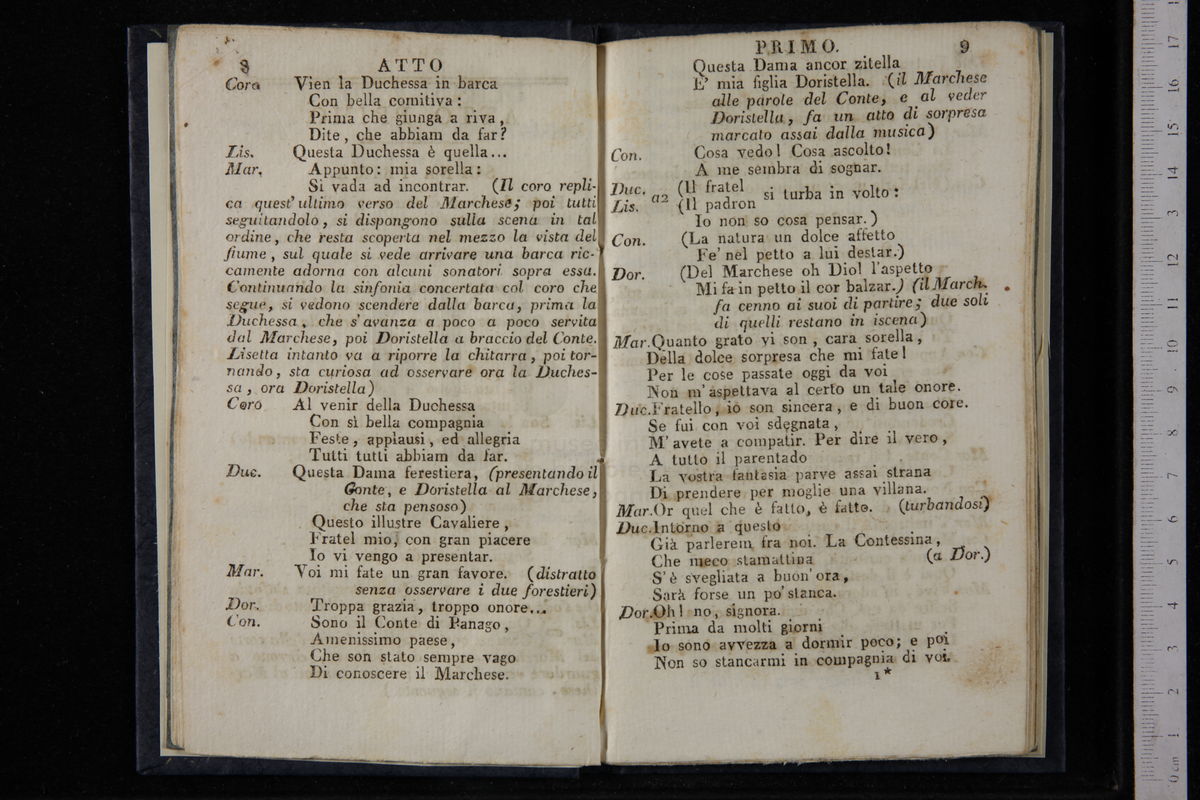 8 ATTO
Coro Vien la Duchessa in barca
Con bella comitiva :
Prima che giunga a riva ,
Dite , che abbiam da far ?
Lis. Questa Duchessa è quella...
Mar. Appunto : mia sorella :
Si vada ad incontrar. (Il coro repli-
ca quest' ultimo verso del Marchese; poi tutti
seguitandolo , si dispongono sulla scena in tal
ordine , che resta scoperta nel mezzo la vista del
fiume , sul quale si vede arrivare una barca ric-
camente adorna con alcuni sonatori sopra essa.
Continuando la sinfonia concertata col coro che
segue, si vedono scendere dalla barca, prima la
Duchessa , che s'avanza a poco a poco servita
dal Marchese, poi Doristella a braccio del Conte.
Lisetta intanto va a riporre la chitarra , poi tor-
nando, sta curiosa ad osservare ora la Duches-
sa , ora Doristella)
Coro Al venir della Duchessa
Con sì bella compagnia
Feste , applausi , ed allegria
Tutti tutti abbiam da far.
Duc. Questa Dama ferestiera, (presentando il
Conte, e Doristella al Marchese,
che sta pensoso)
Questo illustre Cavaliere ,
Fratel mio, con gran piacere
Io vi vengo a presentar.
Mar. Voi mi fate un gran favore. (distratto
senza osservare i due forestieri)
Dor. Troppa grazia, troppo onore...
Con. Sono il Conte di Panago ,
Amenissimo paese,
Che son stato sempre vago
Di conoscere il Marchese.
PRIMO. 9
Questa Dama ancor zitella
E' mia figlia Doristella. (il Marchese
alle parole del Conte, e al veder
Doristella, fa un atto di sorpresa
marcato assai dalla musica)
Con. Cosa vedo! Cosa ascolto!
A me sembra di sognar.
Duc. a2 (Il fratel si turba in volto :
Lis. (Il padron
Io non so cosa pensar. )
Con. (La natura un dolce affetto
Fe' nel petto a lui destar.)
Dor. (Del Marchese oh Dio! l'aspetto
Mi fa in petto il cor balzar.) (il March.
fa cenno ai suoi di partire; due soli
di quelli restano in iscena)
Mar. Quanto grato vi son , cara sorella ,
Della dolce sorpresa che mi fate!
Per le cose passate oggi da voi
Non m'aspettava al certo un tale onore.
Duc. Fratello, io son sincera , e di buon core.
Se fui con voi sdegnata ,
M' avete a compatir. Per dire il vero ,
A tutto il parentado
La vostra fantasia parve assai strana
Di prendere per moglie una villana.
Mar. Or quel che è fatto, è fatto. (turbandosi)
Duc. Intorno a questo
Già parlerem fra noi. La Contessina ,
Che meco stamattina (a Dor.)
S' è svegliata a buon' ora,
Sarà forse un po' stanca.
Dor. Oh! no, signora.
Prima da molti giorni
Io sono avvezza a dormir poco; e poi
Non so stancarmi in compagnia di voi.
1*